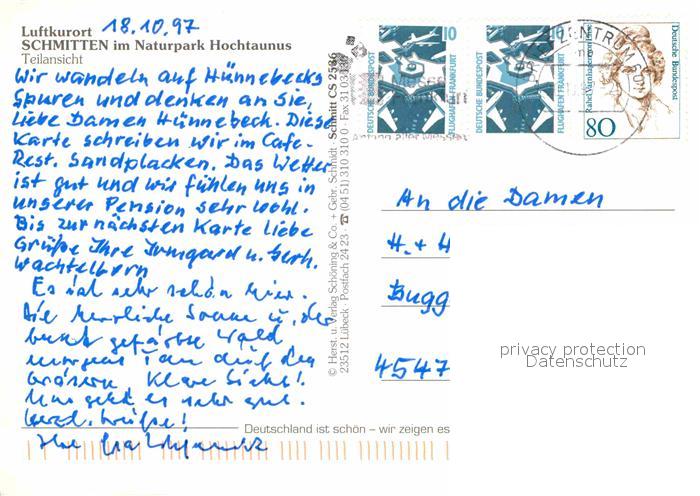 18.10.97
Luftkurort
SCHMITTEN im Naturpark Hochtaunus
Teilansicht
Wir wandeln auf Hünnebecks
Spuren und denken an Sie,
liebe Damen Hünnebeck. Diese
Karte schreiben wir im Cafe-
Rest. Sandplacken. Das Wetter
ist gut und wir fühlen uns in
unserer Pension sehr wohl.
Bis zur nächsten Karte liebe
Grüße Ihre Irmgard u. Gerh.
Wachtelborn
Es ist sehr schön hier.
Die herrliche Sonne u. der
bunt gefärbte Wald
morgens Tau auf den
Gräsern. Klare Sicht!
Uns geht es sehr gut.
Herzl. Grüße!
Ihre
© Herst. u. Verlag Schöning & Co. + Gebr. Schmidt · Schmitt CS 2566
23512 Lübeck · Postfach 24 23 · ☎ (04 51) 310 310 0 · Fax 310
Deutschland ist schön – wir zeigen es
10
DEUTSCHE BUNDESPOST
FLUGHAFEN FRANKFURT
DEUTSCHE BUNDESPOST
FLUGHAFEN FRANKFURT
80
Rahel Varnhagen von Ense
Deutsche Bundespost
BRIEFZENTRUM
An die Damen
H. + H
Bugg
4547
privacy protection
Datenschutz